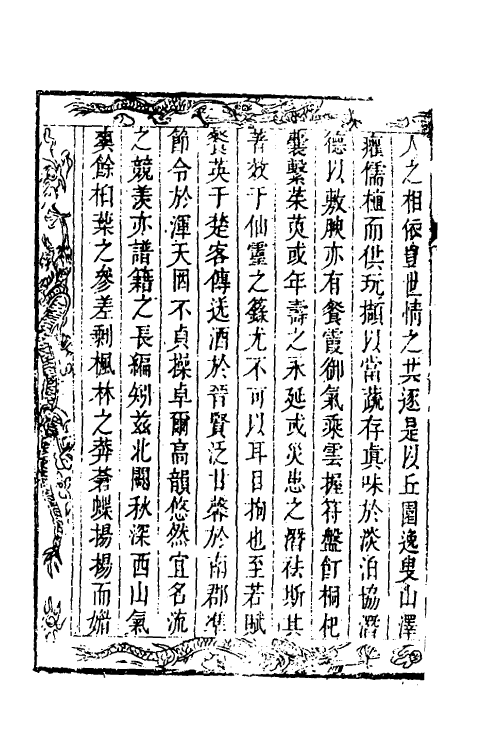 人之相依豈世情之共逐是以丘園逸叟山澤
癯儒植而供玩擷以當蔬存真味於淡泊協潛
德以敷腴亦有餐霞御氣乘雲握符盤飣桐杞
囊繫茱萸或年壽之永延或災患之潛祛斯其
著效于仙靈之籙尤不可以耳目拘也至若賦
餐英于楚客傳送酒於晉賢泛甘馨於南郡隼
節令於渾天固不貞操卓爾高韻悠然宜名流
之競羨亦譜籍之長編矧茲北闕秋深西山氣
爽餘柏葉之參差剩楓林之莽蒼蝶揚楊而嬌